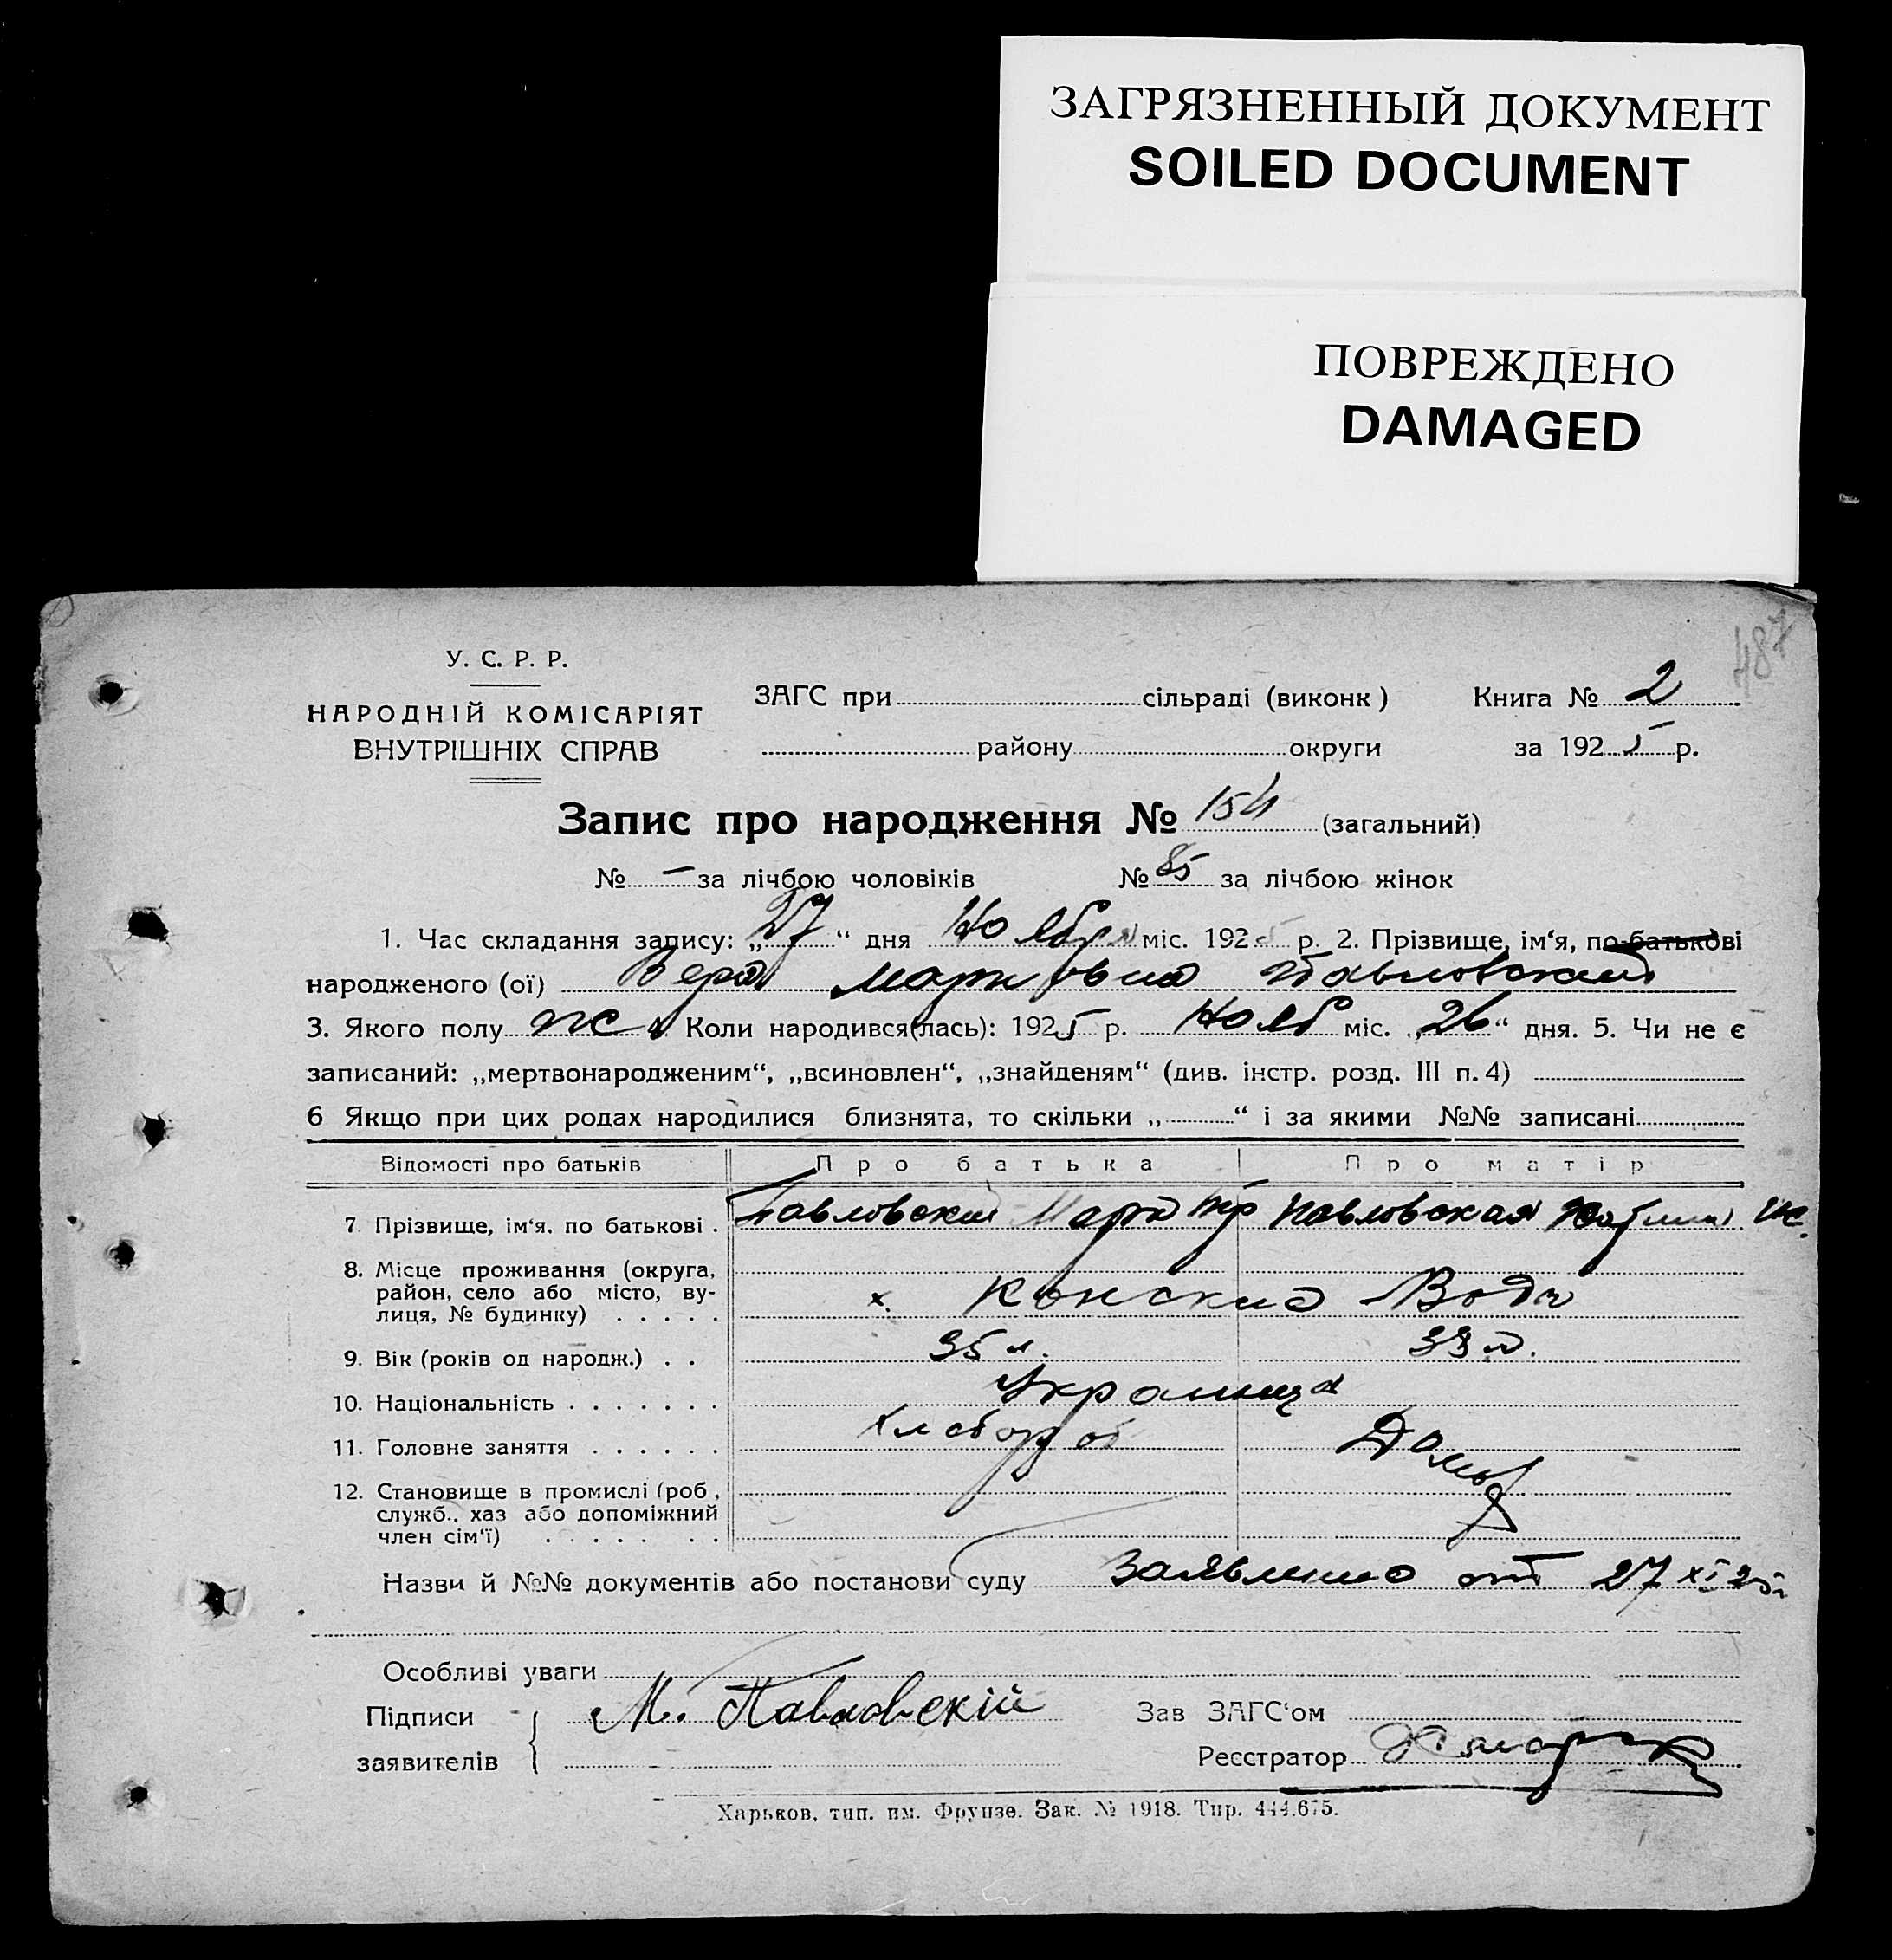 ЗАГРЯЗНЕННЫЙ ДОКУМЕНТ
SOILED DOCUMENT
ПОВРЕЖДЕНО
DAMAGED
487
У. С. Р. Р.
НАРОДНІЙ КОМІСАРІЯТ
ВНУТРІШНІХ СПРАВ
ЗАГС при сільраді (виконк) Книга № 2
району округи за 1925 р.
Запис про народження № 154 (загальний)
№ — за лічбою чоловіків № 85 за лічбою жінок
1. Час складання запису: „27“ дня Ноября міс. 1925 р. 2. Прізвище, ім‘я, по-батькові
народженого (ої) Вера Марковна Павловская
3. Якого полу ж 4 Коли народився(лась): 1925 р. Нояб міс. „26“ дня. 5. Чи не є
записаний: „мертвонародженим“, „всиновлен“, „знайденям“ (див. інстр. розд. III п. 4)
6 Якщо при цих родах народилися близнята, то скільки „ “ і за якими №№ записані
Відомості про батьків Про батька Про матір
7. Прізвище, ім‘я, по батькові . Павловский Марк Павловская
8. Місце проживання (округа,
район, село або місто, ву-
лиця, № будинку) . . . . . х. Конские Воды
9. Вік (років од народж.) . . 35 л. 33 л.
10. Національність . . . . . . . Украинцы
11. Головне заняття . . . . . . Хлебороб
12. Становище в промислі (роб.,
служб., хаз або допоміжний
член сім‘ї) . . . . . . .
Назви й №№ документів або постанови суду Заявлено от 27 XI 25
Особливі уваги
Підписи М. Павловскій Зав ЗАГС‘ом
заявителів Реєстратор
Харьков, тип. им. Фрунзе. Зак. № 1918. Тир. 444.675.